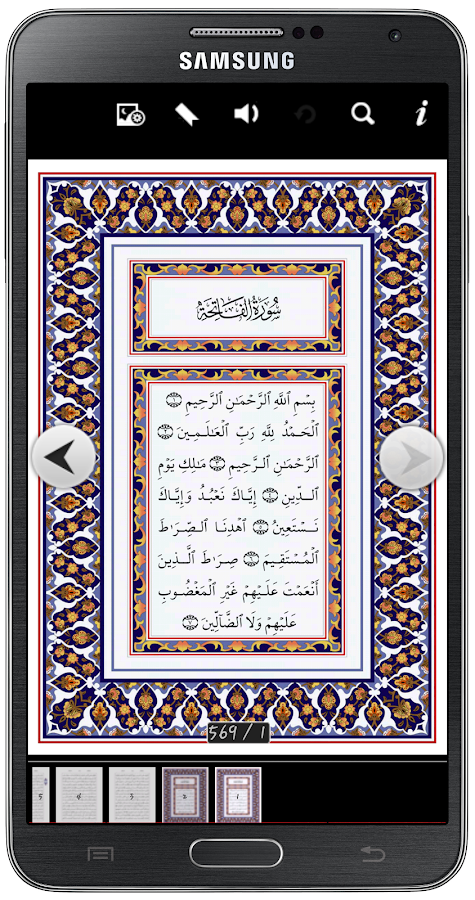 SAMSUNG
سُورَةُ الفَاتِحَةِ
بِسْمِ ٱللَّهِ ٱلرَّحْمَٰنِ ٱلرَّحِيمِ ۝١
ٱلْحَمْدُ لِلَّهِ رَبِّ ٱلْعَٰلَمِينَ ۝٢
ٱلرَّحْمَٰنِ ٱلرَّحِيمِ ۝٣ مَٰلِكِ يَوْمِ
ٱلدِّينِ ۝٤ إِيَّاكَ نَعْبُدُ وَإِيَّاكَ
نَسْتَعِينُ ۝٥ ٱهْدِنَا ٱلصِّرَٰطَ
ٱلْمُسْتَقِيمَ ۝٦ صِرَٰطَ ٱلَّذِينَ
أَنْعَمْتَ عَلَيْهِمْ غَيْرِ ٱلْمَغْضُوبِ
عَلَيْهِمْ وَلَا ٱلضَّآلِّينَ ۝٧
569 / 1
5 4 3 2 1